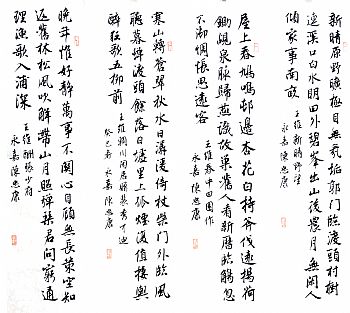 新晴原野曠極目無氛垢郭門臨渡頭村樹
連溪口白水明田外碧峯出山後農月無閒人
傾家事南畝
王維新晴野望
永嘉陳忠康
屋上春鳩鳴邨邊杏花白持斧伐遠揚荷
鋤覘泉脈歸燕識故巢舊人看新曆臨觴忽
不御惆悵思遠客
王維春中田園作
永嘉陳忠康
寒山轉蒼翠秋水日潺湲倚杖柴門外臨風
聽暮蟬渡頭餘落日墟里上孤煙復值接輿
醉狂歌五柳前
王維輞川閒居贈裴秀才迪
癸巳春永嘉陳忠康
晚年惟好靜萬事不關心自顧無長策空知
返舊林松風吹解帶山月照彈琴君問窮通
理漁歌入浦深
王維酬張少府
永嘉陳忠康